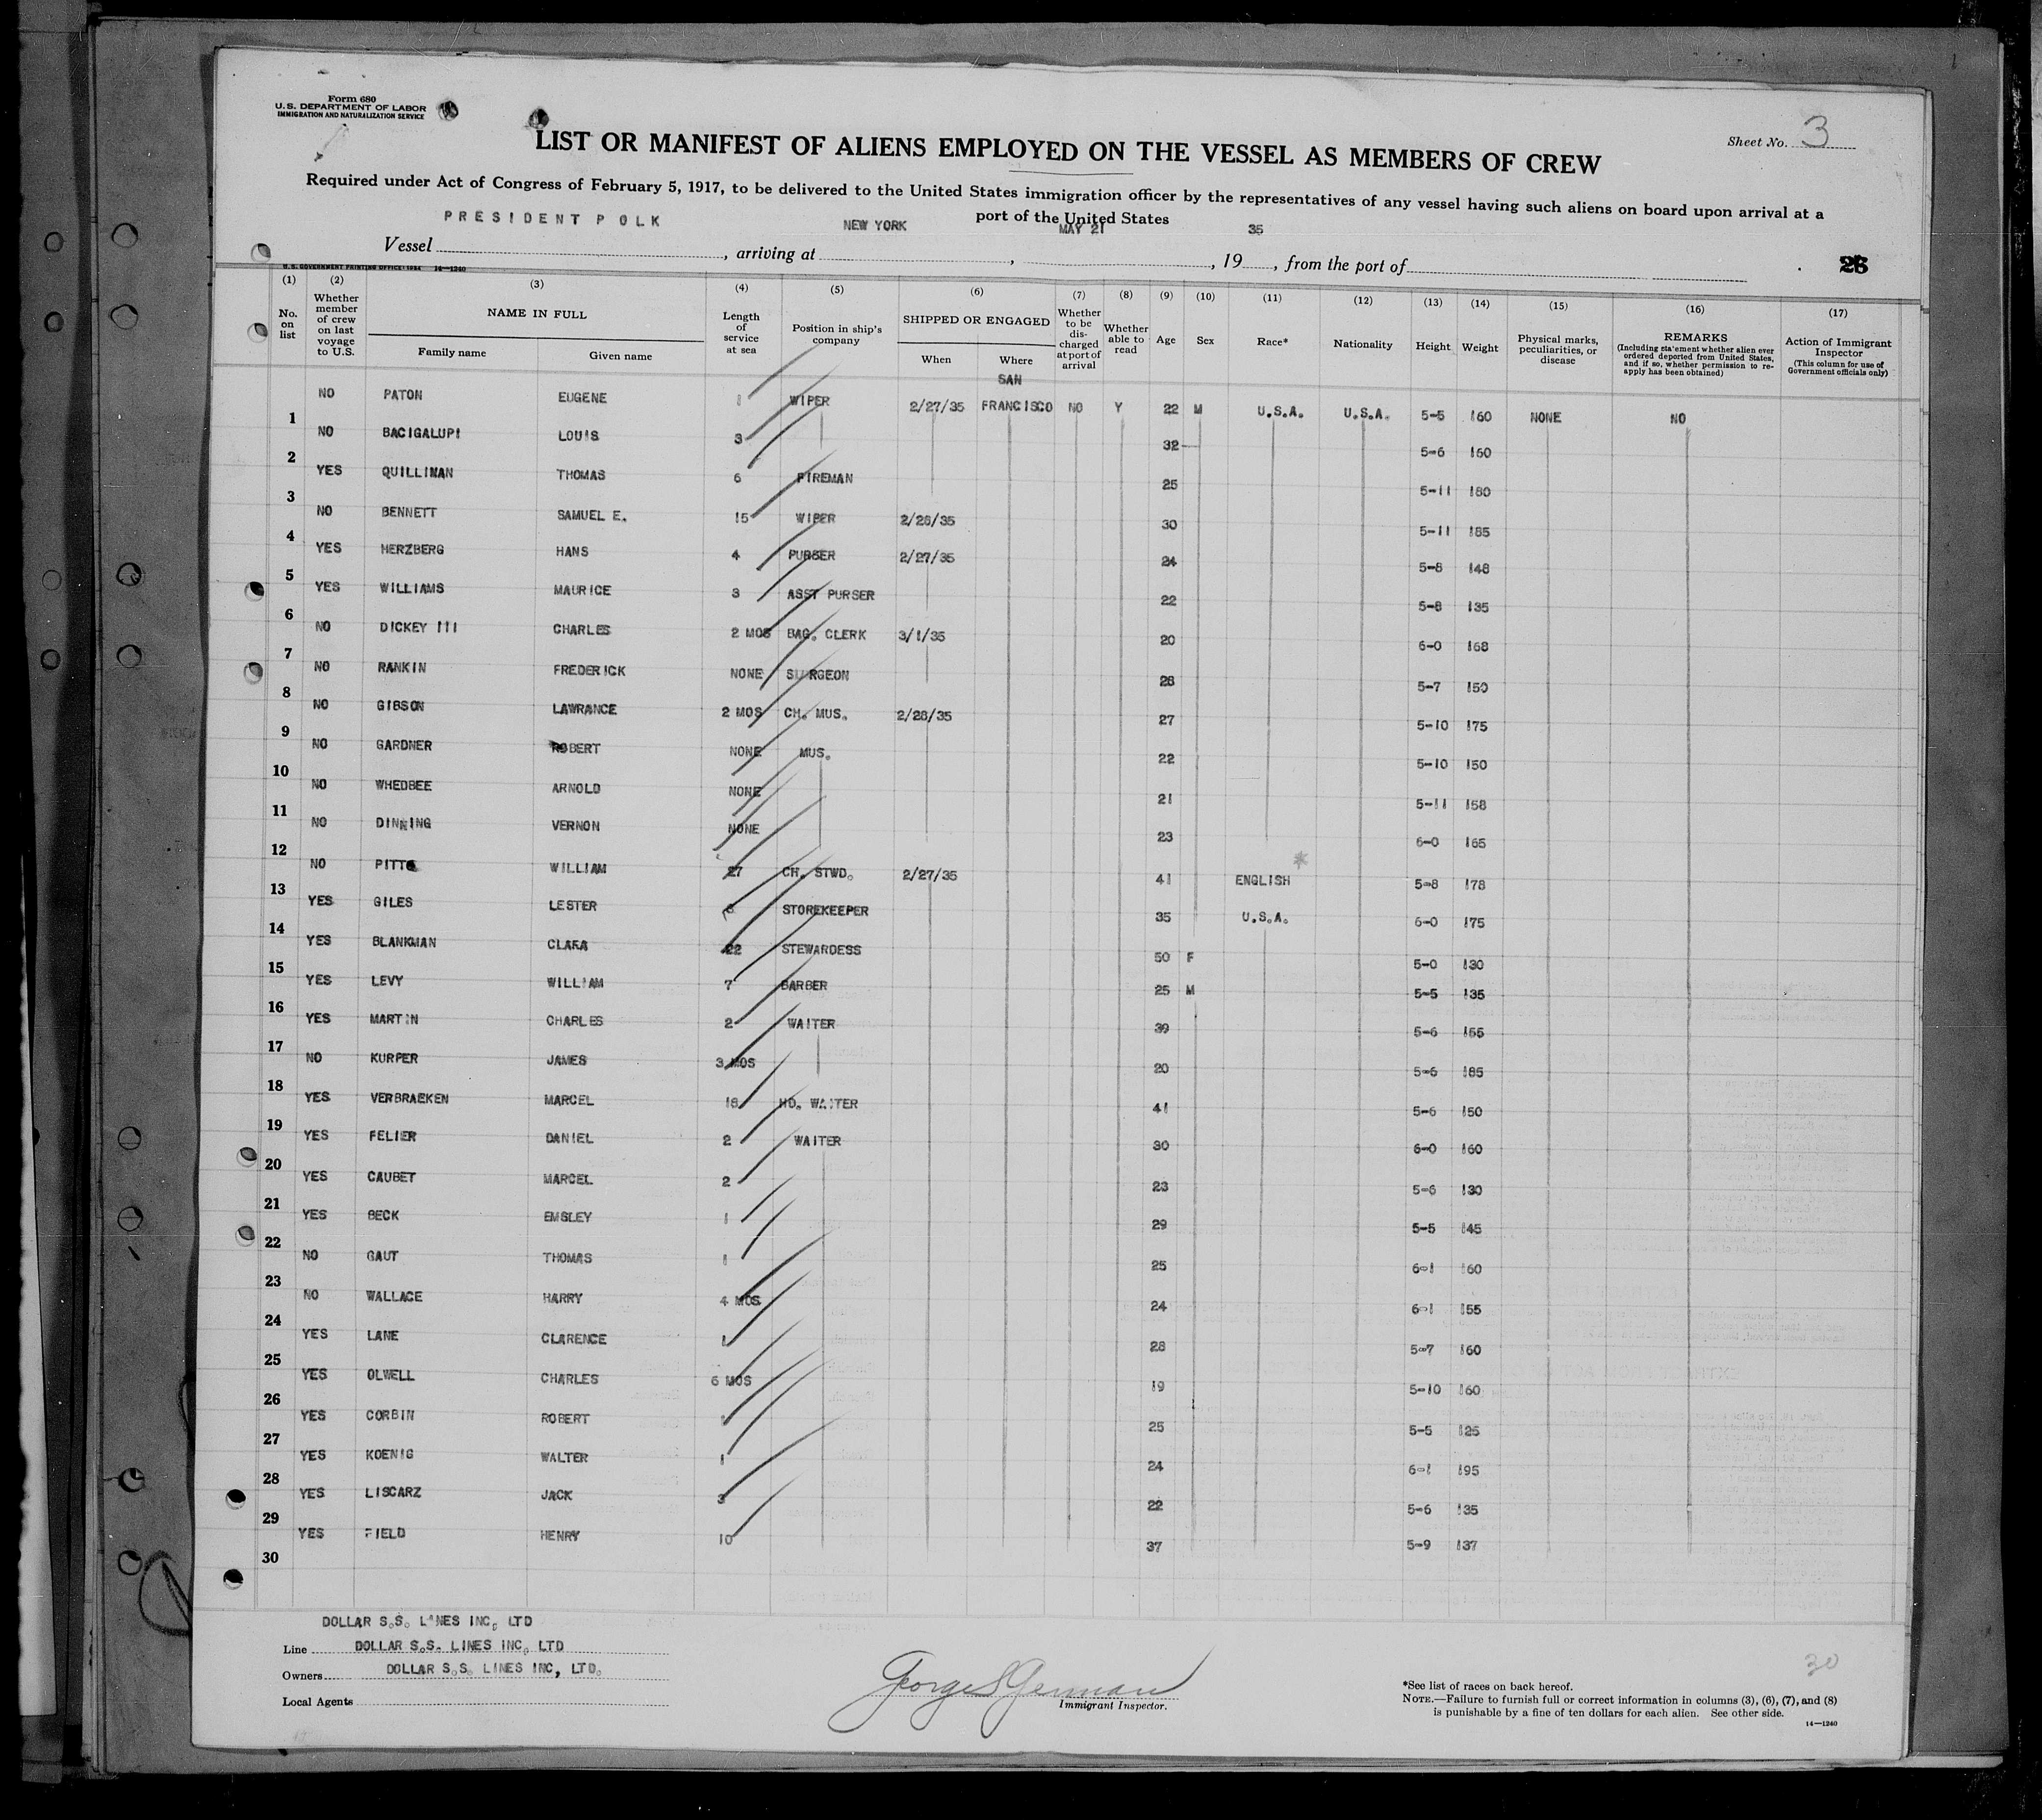 Form 680
U. S. DEPARTMENT OF LABOR
IMMIGRATION AND NATURALIZATION SERVICE
Sheet No. 3
LIST OR MANIFEST OF ALIENS EMPLOYED ON THE VESSEL AS MEMBERS OF CREW
Required under Act of Congress of February 5, 1917, to be delivered to the United States immigration officer by the representatives of any vessel having such aliens on board upon arrival at a
port of the United States
Vessel PRESIDENT POLK, arriving at NEW YORK, MAY 21, 1935, from the port of
U. S. GOVERNMENT PRINTING OFFICE: 1934 14—1240
(1) (2) (3) (4) (5) (6) (7) (8) (9) (10) (11) (12) (13) (14) (15) (16) (17)
No. on list
Whether member of crew on last voyage to U.S.
NAME IN FULL
Family name Given name
Length of service at sea
Position in ship's company
SHIPPED OR ENGAGED
When Where
Whether to be discharged at port of arrival
Whether able to read
Age
Sex
Race*
Nationality
Height
Weight
Physical marks, peculiarities, or disease
REMARKS
(Including statement whether alien ever ordered deported from United States, and if so, whether permission to reapply has been obtained)
Action of Immigrant Inspector
(This column for use of Government officials only)
1 NO PATON EUGENE 1 WIPER 2/27/35 SAN FRANCISCO NO Y 22 M U.S.A. U.S.A. 5-5 160 NONE NO
2 NO BACIGALUPI LOUIS 3 32 5-6 160
3 YES QUILLINAN THOMAS 6 FIREMAN 25 5-11 180
4 NO BENNETT SAMUEL E. 15 WIPER 2/28/35 30 5-11 185
5 YES HERZBERG HANS 4 PURSER 2/27/35 24 5-8 148
6 YES WILLIAMS MAURICE 3 ASST PURSER 22 5-8 135
7 NO DICKEY III CHARLES 2 MOS BAG. CLERK 3/1/35 20 6-0 168
8 NO RANKIN FREDERICK NONE SURGEON 28 5-7 150
9 NO GIBSON LAWRANCE 2 MOS CH. MUS. 2/28/35 27 5-10 175
10 NO GARDNER ROBERT NONE MUS. 22 5-10 150
11 NO WHEDBEE ARNOLD NONE 21 5-11 158
12 NO DINNING VERNON NONE 23 6-0 165
13 NO PITTS WILLIAM 27 CH. STWD. 2/27/35 41 ENGLISH * 5-8 178
14 YES GILES LESTER STOREKEEPER 35 U.S.A. 6-0 175
15 YES BLANKMAN CLARA 22 STEWARDESS 50 F 5-0 130
16 YES LEVY WILLIAM 7 BARBER 25 M 5-5 135
17 YES MARTIN CHARLES 2 WAITER 39 5-6 155
18 NO KURPER JAMES 3 MOS 20 5-6 185
19 YES VERBRAEKEN MARCEL 18 HD. WAITER 41 5-6 150
20 YES FELIER DANIEL 2 WAITER 30 6-0 160
21 YES CAUBET MARCEL 2 23 5-6 130
22 YES BECK EMSLEY 1 29 5-5 145
23 NO GAUT THOMAS 1 25 6-1 160
24 NO WALLACE HARRY 4 MOS 24 6-1 155
25 YES LANE CLARENCE 1 28 5-7 160
26 YES OLWELL CHARLES 6 MOS 19 5-10 160
27 YES CORBIN ROBERT 25 5-5 125
28 YES KOENIG WALTER 1 24 6-1 195
29 YES LISCARZ JACK 3 22 5-6 135
30 YES FIELD HENRY 10 37 5-9 137
DOLLAR S.S. LINES INC, LTD
Line DOLLAR S.S. LINES INC, LTD
Owners DOLLAR S.S. LINES INC, LTD.
Local Agents
George S German
Immigrant Inspector.
30
*See list of races on back hereof.
NOTE.—Failure to furnish full or correct information in columns (3), (6), (7), and (8)
is punishable by a fine of ten dollars for each alien. See other side.
14—1240